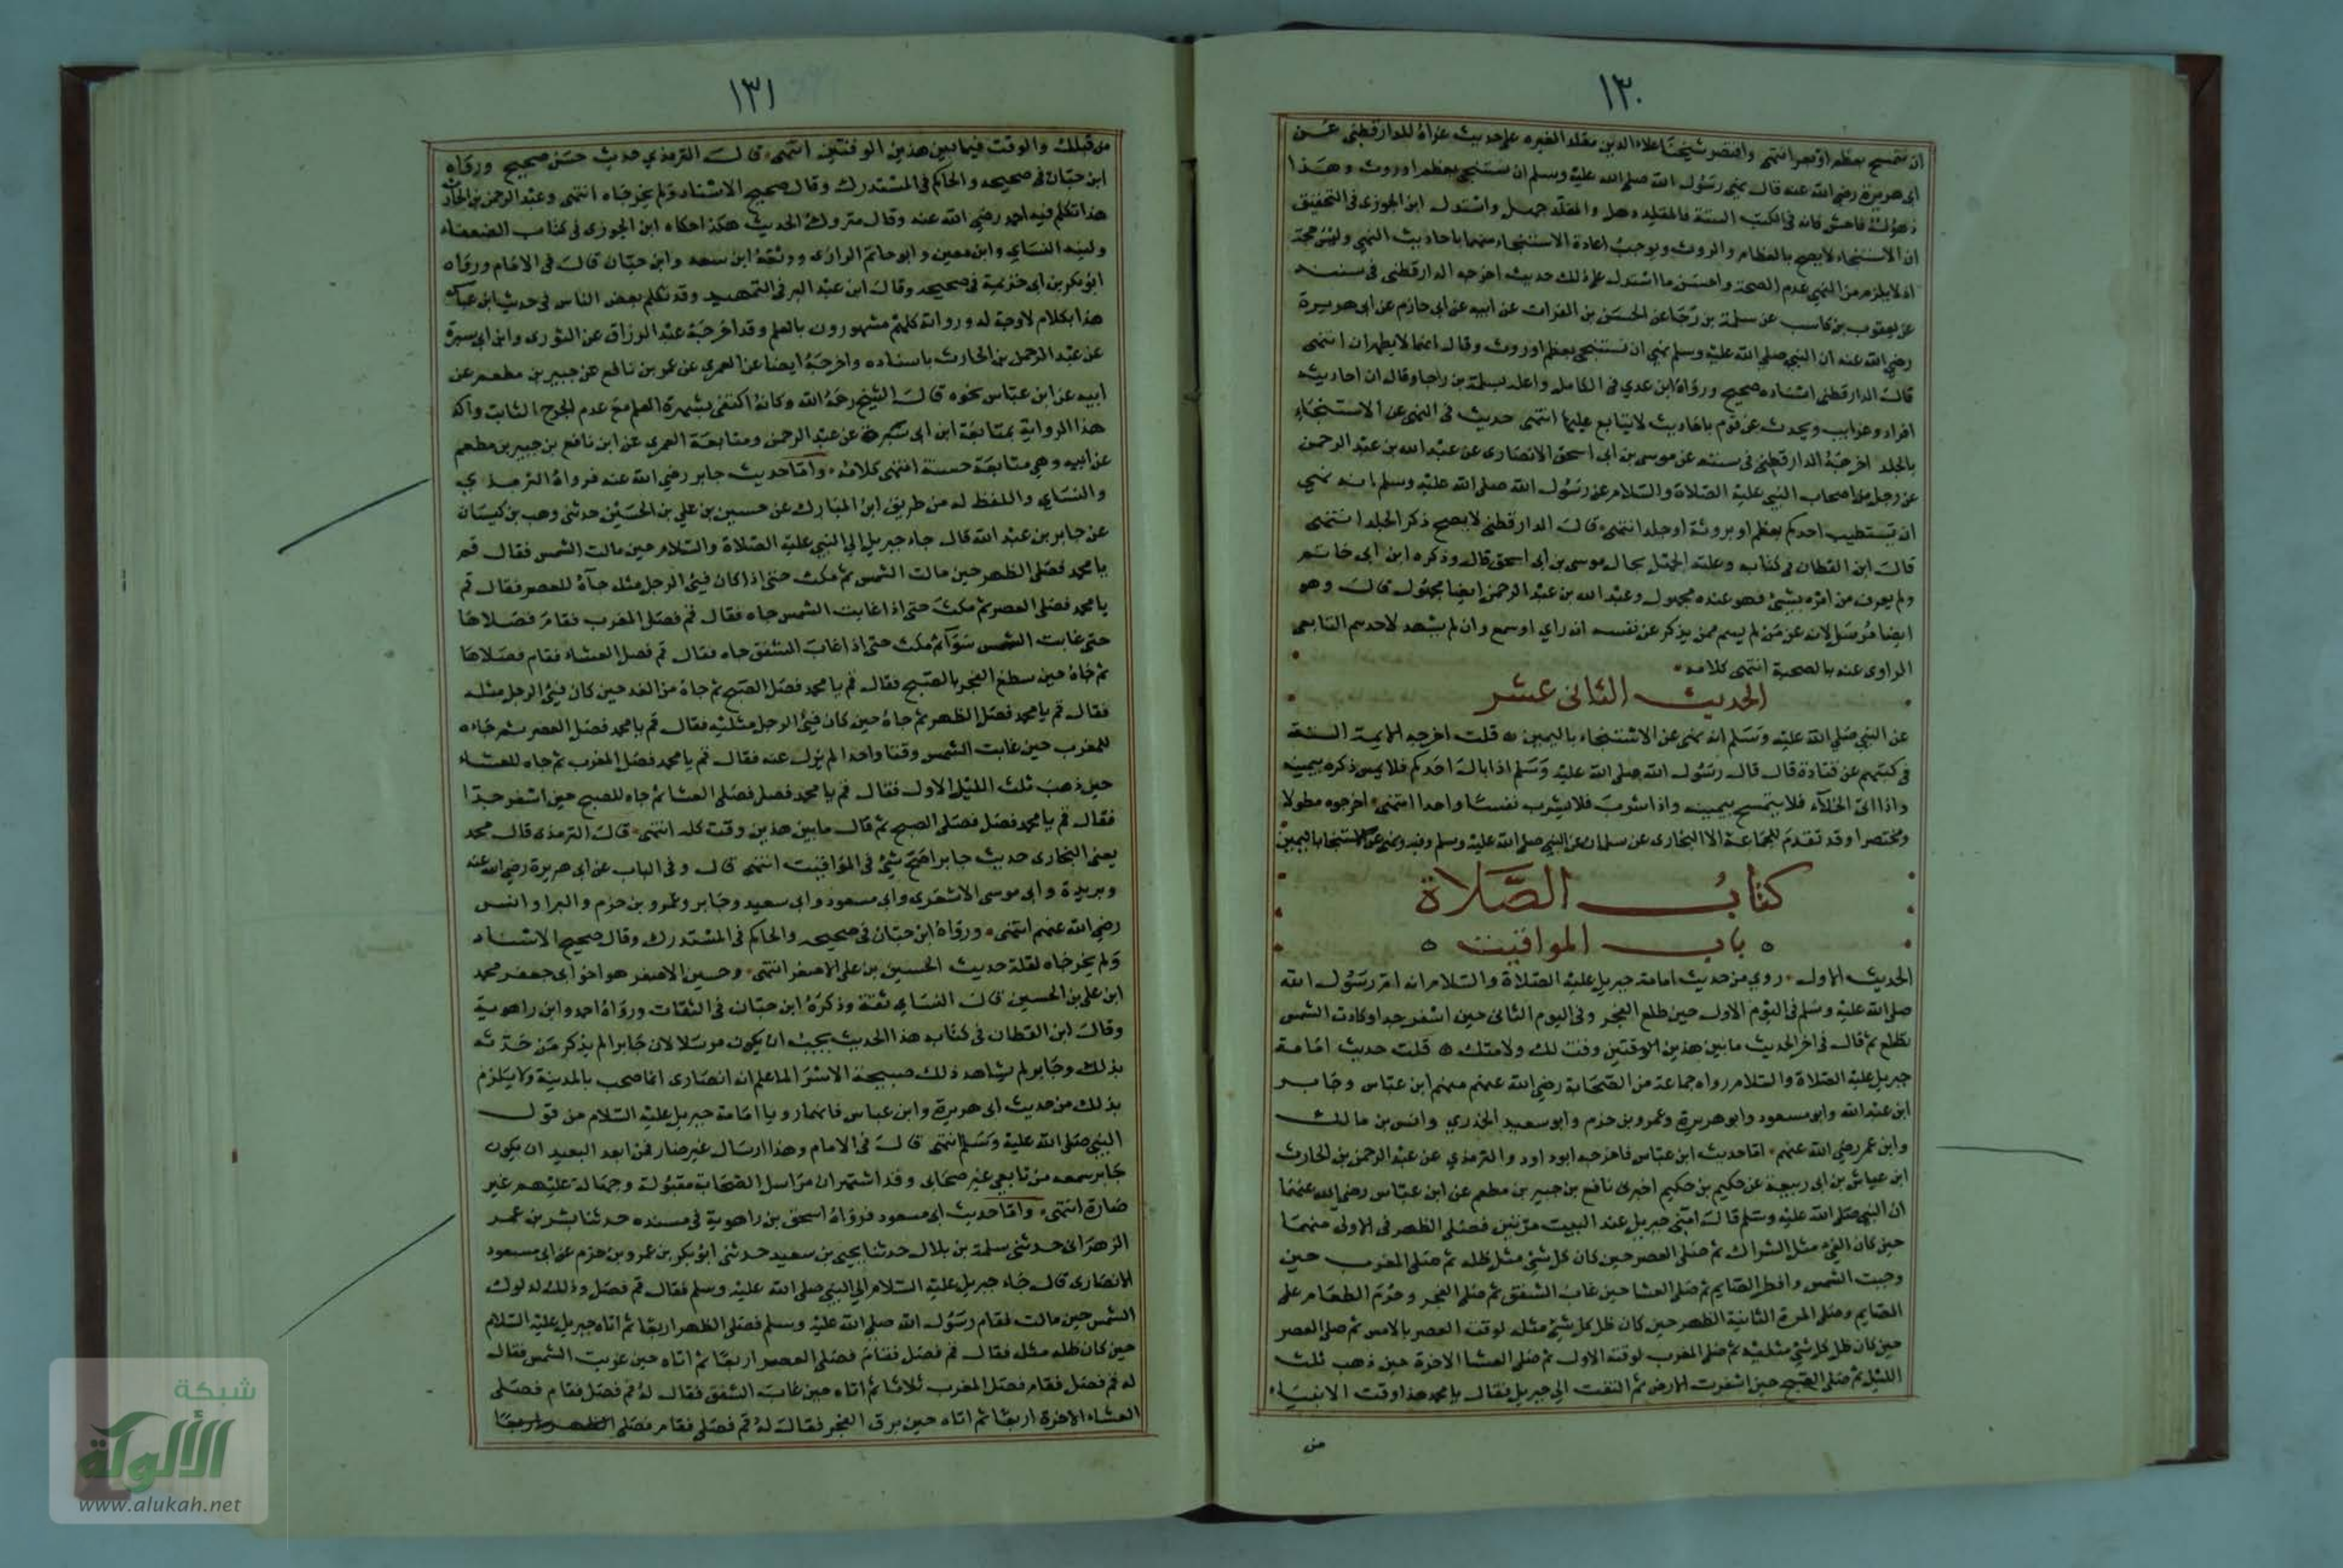 ١٣٠
ان نتمسح بعظم او بعر انتهى واقتصر شيخنا علاء الدين مقلد الغيره على حديث عزاه للدارقطنى عن
ابى هريرة رضي الله عنه قال نهى رسول الله صلى الله عليه وسلم ان نستنجى بعظم او روث وهذا
ذهول فاحش فانه فى الكتب الستة فالمقلد ذهل والمقلد جهل واستدل ابن الجوزى فى التحقيق
ان الاستنجاء لا يصح بالعظام والروث ويوجب اعادة الاستنجاء منهما باحاديث النهي وليس بحجة
اذ لا يلزم من النهي عدم الصحة واحسن ما استدل على ذلك حديث اخرجه الدارقطنى فى سننه
عن يعقوب بن كاسب عن سلمة بن رجا عن الحسن بن الفرات عن ابيه عن ابى حازم عن ابى هريرة
رضي الله عنه ان النبي صلى الله عليه وسلم نهى ان نستنجى بعظم او روث وقال انهما لا يطهران انتهى
قال الدارقطنى اسناده صحيح ورواه ابن عدي فى الكامل واعله بسلمة بن رجا وقال ان احاديثه
افراد وغرايب ويحدث عن قوم باحاديث لا يتابع عليها انتهى حديث فى النهى عن الاستنجاء
بالجلد اخرجه الدارقطنى فى سننه عن موسى بن ابى اسحق الانصارى عن عبد الله بن عبد الرحمن
عن رجل من اصحاب النبي عليه الصلاة والسلام عن رسول الله صلى الله عليه وسلم انه نهى
ان يستطيب احدكم بعظم او بروثة او جلد انتهى قال الدارقطنى لا يصح ذكر الجلد انتهى
قال ابن القطان فى كتابه وعلته الجهل بحال موسى بن ابى اسحق قال وذكره ابن ابى حاتم
ولم يعرف من امره بشئ فهو عنده مجهول وعبد الله بن عبد الرحمن ايضا مجهول قال وهو
ايضا مرسل لانه عن من لم يسم ممن يذكر عن نفسه انه راي او سمع وان لم يشهد لاحدهم التابعى
الراوى عنه بالصحبة انتهى كلامه
الحديث الثانى عشر
عن النبي صلى الله عليه وسلم انه نهى عن الاستنجاء باليمين قلت اخرجه الايمة الستة
فى كتبهم عن قتادة قال قال رسول الله صلى الله عليه وسلم اذا بال احدكم فلا يمس ذكره بيمينه
واذا اتى الخلآء فلا يتمسح بيمينه واذا شرب فلا يشرب نفسا واحدا انتهى اخرجوه مطولا
ومختصرا وقد تقدم للجماعة الا البخارى عن سلمان عن النبي صلى الله عليه وسلم وفيه ونهى عن الاستنجا باليمين
كتاب الصلاة
باب المواقيت
الحديث الاول روي من حديث امامة جبريل عليه الصلاة والسلام انه ام رسول الله
صلى الله عليه وسلم فى اليوم الاول حين طلع الفجر وفى اليوم الثانى حين اسفر جدا وكادت الشمس
تطلع ثم قال فى اخر الحديث ما بين هذين الوقتين وقت لك ولامتك قلت حديث امامة
جبريل عليه الصلاة والسلام رواه جماعة من الصحابة رضي الله عنهم منهم ابن عباس وجابر
ابن عبد الله وابو مسعود وابو هريرة وعمرو بن حزم وابو سعيد الخدري وانس بن مالك
وابن عمر رضي الله عنهم اما حديث ابن عباس فاخرجه ابو داود والترمذي عن عبد الرحمن بن الحارث
ابن عياش بن ابى ربيعة عن حكيم بن حكيم اخبرنى نافع بن جبير بن مطعم عن ابن عباس رضي الله عنهما
ان النبي صلى الله عليه وسلم قال امني جبريل عند البيت مرتين فصلى الظهر فى الاولى منهما
حين كان الفئ مثل الشراك ثم صلى العصر حين كان كل شئ مثل ظله ثم صلى المغرب حين
وجبت الشمس وافطر الصايم ثم صلى العشا حين غاب الشفق ثم صلى الفجر وحرم الطعام على
الصايم وصلى المرة الثانية الظهر حين كان ظل كل شئ مثله لوقت العصر بالامس ثم صلى العصر
حين كان ظل كل شئ مثليه ثم صلى المغرب لوقته الاول ثم صلى العشا الاخرة حين ذهب ثلث
الليل ثم صلى الصبح حين اسفرت الارض ثم التفت الي جبريل فقال يا محمد هذا وقت الانبياء
من
١٣١
من قبلك والوقت فيما بين هذين الوقتين انتهى قال الترمذي حديث حسن صحيح ورواه
ابن حبان فى صحيحه والحاكم فى المستدرك وقال صحيح الاسناد ولم يخرجاه انتهى وعبد الرحمن بن الحارث
هذا تكلم فيه احمد رضي الله عنه وقال متروك الحديث هكذا حكاه ابن الجوزى فى كتاب الضعفاء
ولينه النسائ وابن معين وابو حاتم الرازى ووثقه ابن سعد وابن حبان قال فى الامام ورواه
ابو بكر بن ابى خزيمة فى صحيحه وقال ابن عبد البر فى التمهيد وقد تكلم بعض الناس فى حديث ابن عباس
هذا بكلام لا وجه له ورواته كلهم مشهورون بالعلم وقد اخرجه عبد الرزاق عن الثورى وابن ابى سبرة
عن عبد الرحمن بن الحارث باسناده واخرجه ايضا عن العمري عن عمر بن نافع عن جبير بن مطعم عن
ابيه عن ابن عباس نحوه قال الشيخ رحمه الله وكانه اكتفى بشهرة العلم مع عدم الجرح الثابت واكد
هذا الرواية بمتابعة ابن ابى سبرة عن عبد الرحمن ومتابعة العمري عن ابن نافع بن جبير بن مطعم
عن ابيه وهي متابعة حسنة انتهى كلامه واما حديث جابر رضي الله عنه فرواه الترمذي
والنسائ واللفظ له من طريق ابن المبارك عن حسين بن علي بن الحسين حدثنى وهب بن كيسان
عن جابر بن عبد الله قال جاء جبريل الي النبي عليه الصلاة والسلام حين مالت الشمس فقال قم
يا محمد فصلى الظهر حين مالت الشمس ثم مكث حتى اذا كان فيئ الرجل مثله جآه للعصر فقال قم
يا محمد فصلى العصر ثم مكث حتى اذا غابت الشمس جاه فقال قم فصل المغرب فقام فصلاها
حتى غابت الشمس سوآ ثم مكث حتى اذا غاب الشفق جاه فقال قم فصل العشاء فقام فصلاها
ثم جاه حين سطع الفجر بالصبح فقال قم يا محمد فصل الصبح ثم جاه من الغد حين كان فيئ الرجل مثله
فقال قم يا محمد فصل الظهر ثم جاه حين كان فيئ الرجل مثليه فقال قم يا محمد فصل العصر ثم جاءه
للمغرب حين غابت الشمس وقتا واحدا لم يزل عنه فقال قم يا محمد فصل المغرب ثم جاه للعشاء
حين ذهب ثلث الليل الاول فقال قم يا محمد فصل فصلى العشا ثم جاه للصبح حين اسفر جدا
فقال قم يا محمد فصل فصلى الصبح ثم قال ما بين هذين وقت كله انتهى قال الترمذى قال محمد
يعنى البخارى حديث جابر اصح شئ فى المواقيت انتهى قال وفى الباب عن ابى هريرة رضي الله عنه
وبريدة وابى موسى الاشعرى وابى مسعود وابى سعيد وجابر وعمرو بن حزم والبرا وانس
رضي الله عنهم انتهى ورواه ابن حبان فى صحيحه والحاكم فى المستدرك وقال صحيح الاسناد
ولم يخرجاه لقلة حديث الحسين بن على الاصغر انتهى وحسين الاصغر هو اخو ابى جعفر محمد
ابن على بن الحسين قال النسائ ثقة وذكره ابن حبان فى الثقات ورواه احمد وابن راهوية
وقال ابن القطان فى كتابه هذا الحديث يجب ان يكون مرسلا لان جابرا لم يذكر من حدثه
بذلك وجابر لم يشاهد ذلك صبيحة الاسرا لما علم انه انصارى انما صحب بالمدينة ولا يلزم
بذلك من حديث ابى هريرة وابن عباس فانهما رويا امامة جبريل عليه السلام من قول
النبي صلى الله عليه وسلم انتهى قال فى الامام وهذا ارسال غير ضار فمن ابعد البعيد ان يكون
جابر سمعه من تابعي غير صحابى وقد اشتهر ان مراسل الصحابة مقبولة وجهالة عليهم غير
ضارة انتهى واما حديث ابى مسعود فرواه اسحق بن راهوية فى مسنده حدثنا بشر بن عمر
الزهرانى حدثنى سلمة بن بلال حدثنا يحيى بن سعيد حدثنى ابو بكر بن عمرو بن حزم عن ابى مسعود
الانصارى قال جاء جبريل عليه السلام الي النبي صلى الله عليه وسلم فقال قم فصل وذلك لدلوك
الشمس حين مالت فقام رسول الله صلى الله عليه وسلم فصلى الظهر اربعا ثم اتاه جبريل عليه السلام
حين كان ظله مثله فقال قم فصل فقام فصلى العصر اربعا ثم اتاه حين غربت الشمس فقال
له قم فصل فقام فصل المغرب ثلاثا ثم اتاه حين غاب الشفق فقال له قم فصل فقام فصلى
العشاء الاخرة اربعا ثم اتاه حين برق الفجر فقال له قم فصلى فقام فصلى
شبكة
الألوكة
www.alukah.net